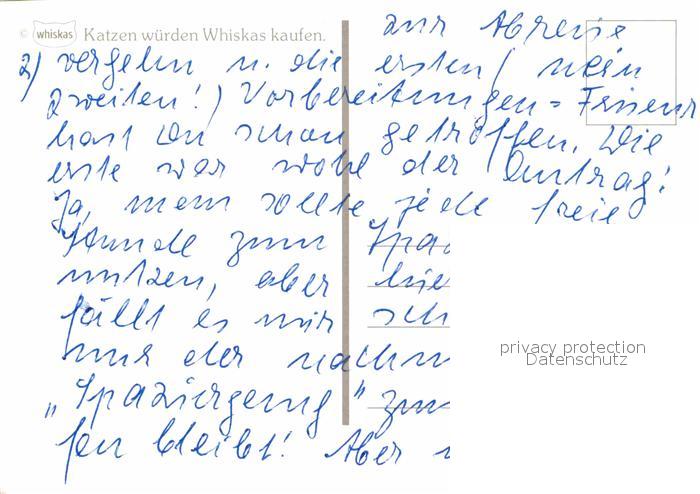 © whiskas Katzen würden Whiskas kaufen.
zur Abreise
2) vergehn u. die ersten (nein
zweiten!) Vorbereitungen = Friseur
hast Du schon getroffen. Die
erste war wohl der Antrag!
Ja, man sollte jede freie
Stunde zum Spa
nutzen, aber hie
fällt es mir sch
nur der nachm
„Spaziergang" zum
fen bleibt! Aber
privacy protection
Datenschutz